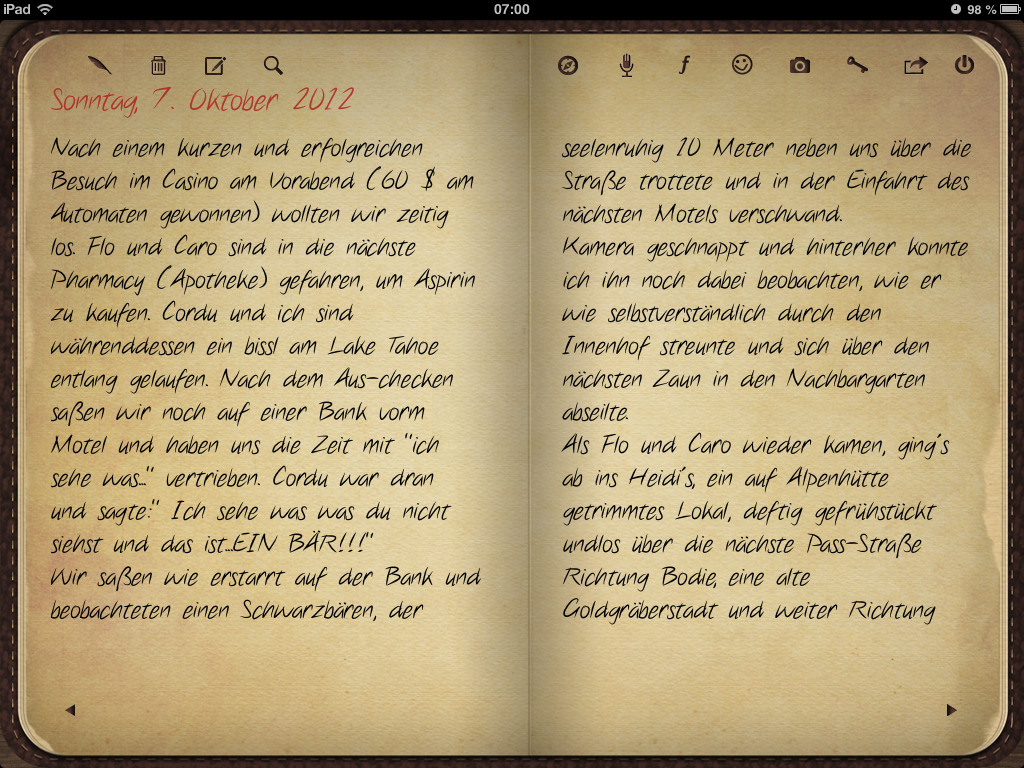 iPad 07:00 98 %
Sonntag, 7. Oktober 2012
Nach einem kurzen und erfolgreichen
Besuch im Casino am Vorabend (60 $ am
Automaten gewonnen) wollten wir zeitig
los. Flo und Caro sind in die nächste
Pharmacy (Apotheke) gefahren, um Aspirin
zu kaufen. Cordu und ich sind
währenddessen ein bissl am Lake Tahoe
entlang gelaufen. Nach dem Aus-checken
saßen wir noch auf einer Bank vorm
Motel und haben uns die Zeit mit "ich
sehe was..." vertrieben. Cordu war dran
und sagte:" Ich sehe was was du nicht
siehst und das ist...EIN BÄR!!!"
Wir saßen wie erstarrt auf der Bank und
beobachteten einen Schwarzbären, der
seelenruhig 10 Meter neben uns über die
Straße trottete und in der Einfahrt des
nächsten Motels verschwand.
Kamera geschnappt und hinterher konnte
ich ihn noch dabei beobachten, wie er
wie selbstverständlich durch den
Innenhof streunte und sich über den
nächsten Zaun in den Nachbargarten
abseilte.
Als Flo und Caro wieder kamen, ging's
ab ins Heidi's, ein auf Alpenhütte
getrimmtes Lokal, deftig gefrühstückt
undlos über die nächste Pass-Straße
Richtung Bodie, eine alte
Goldgräberstadt und weiter Richtung